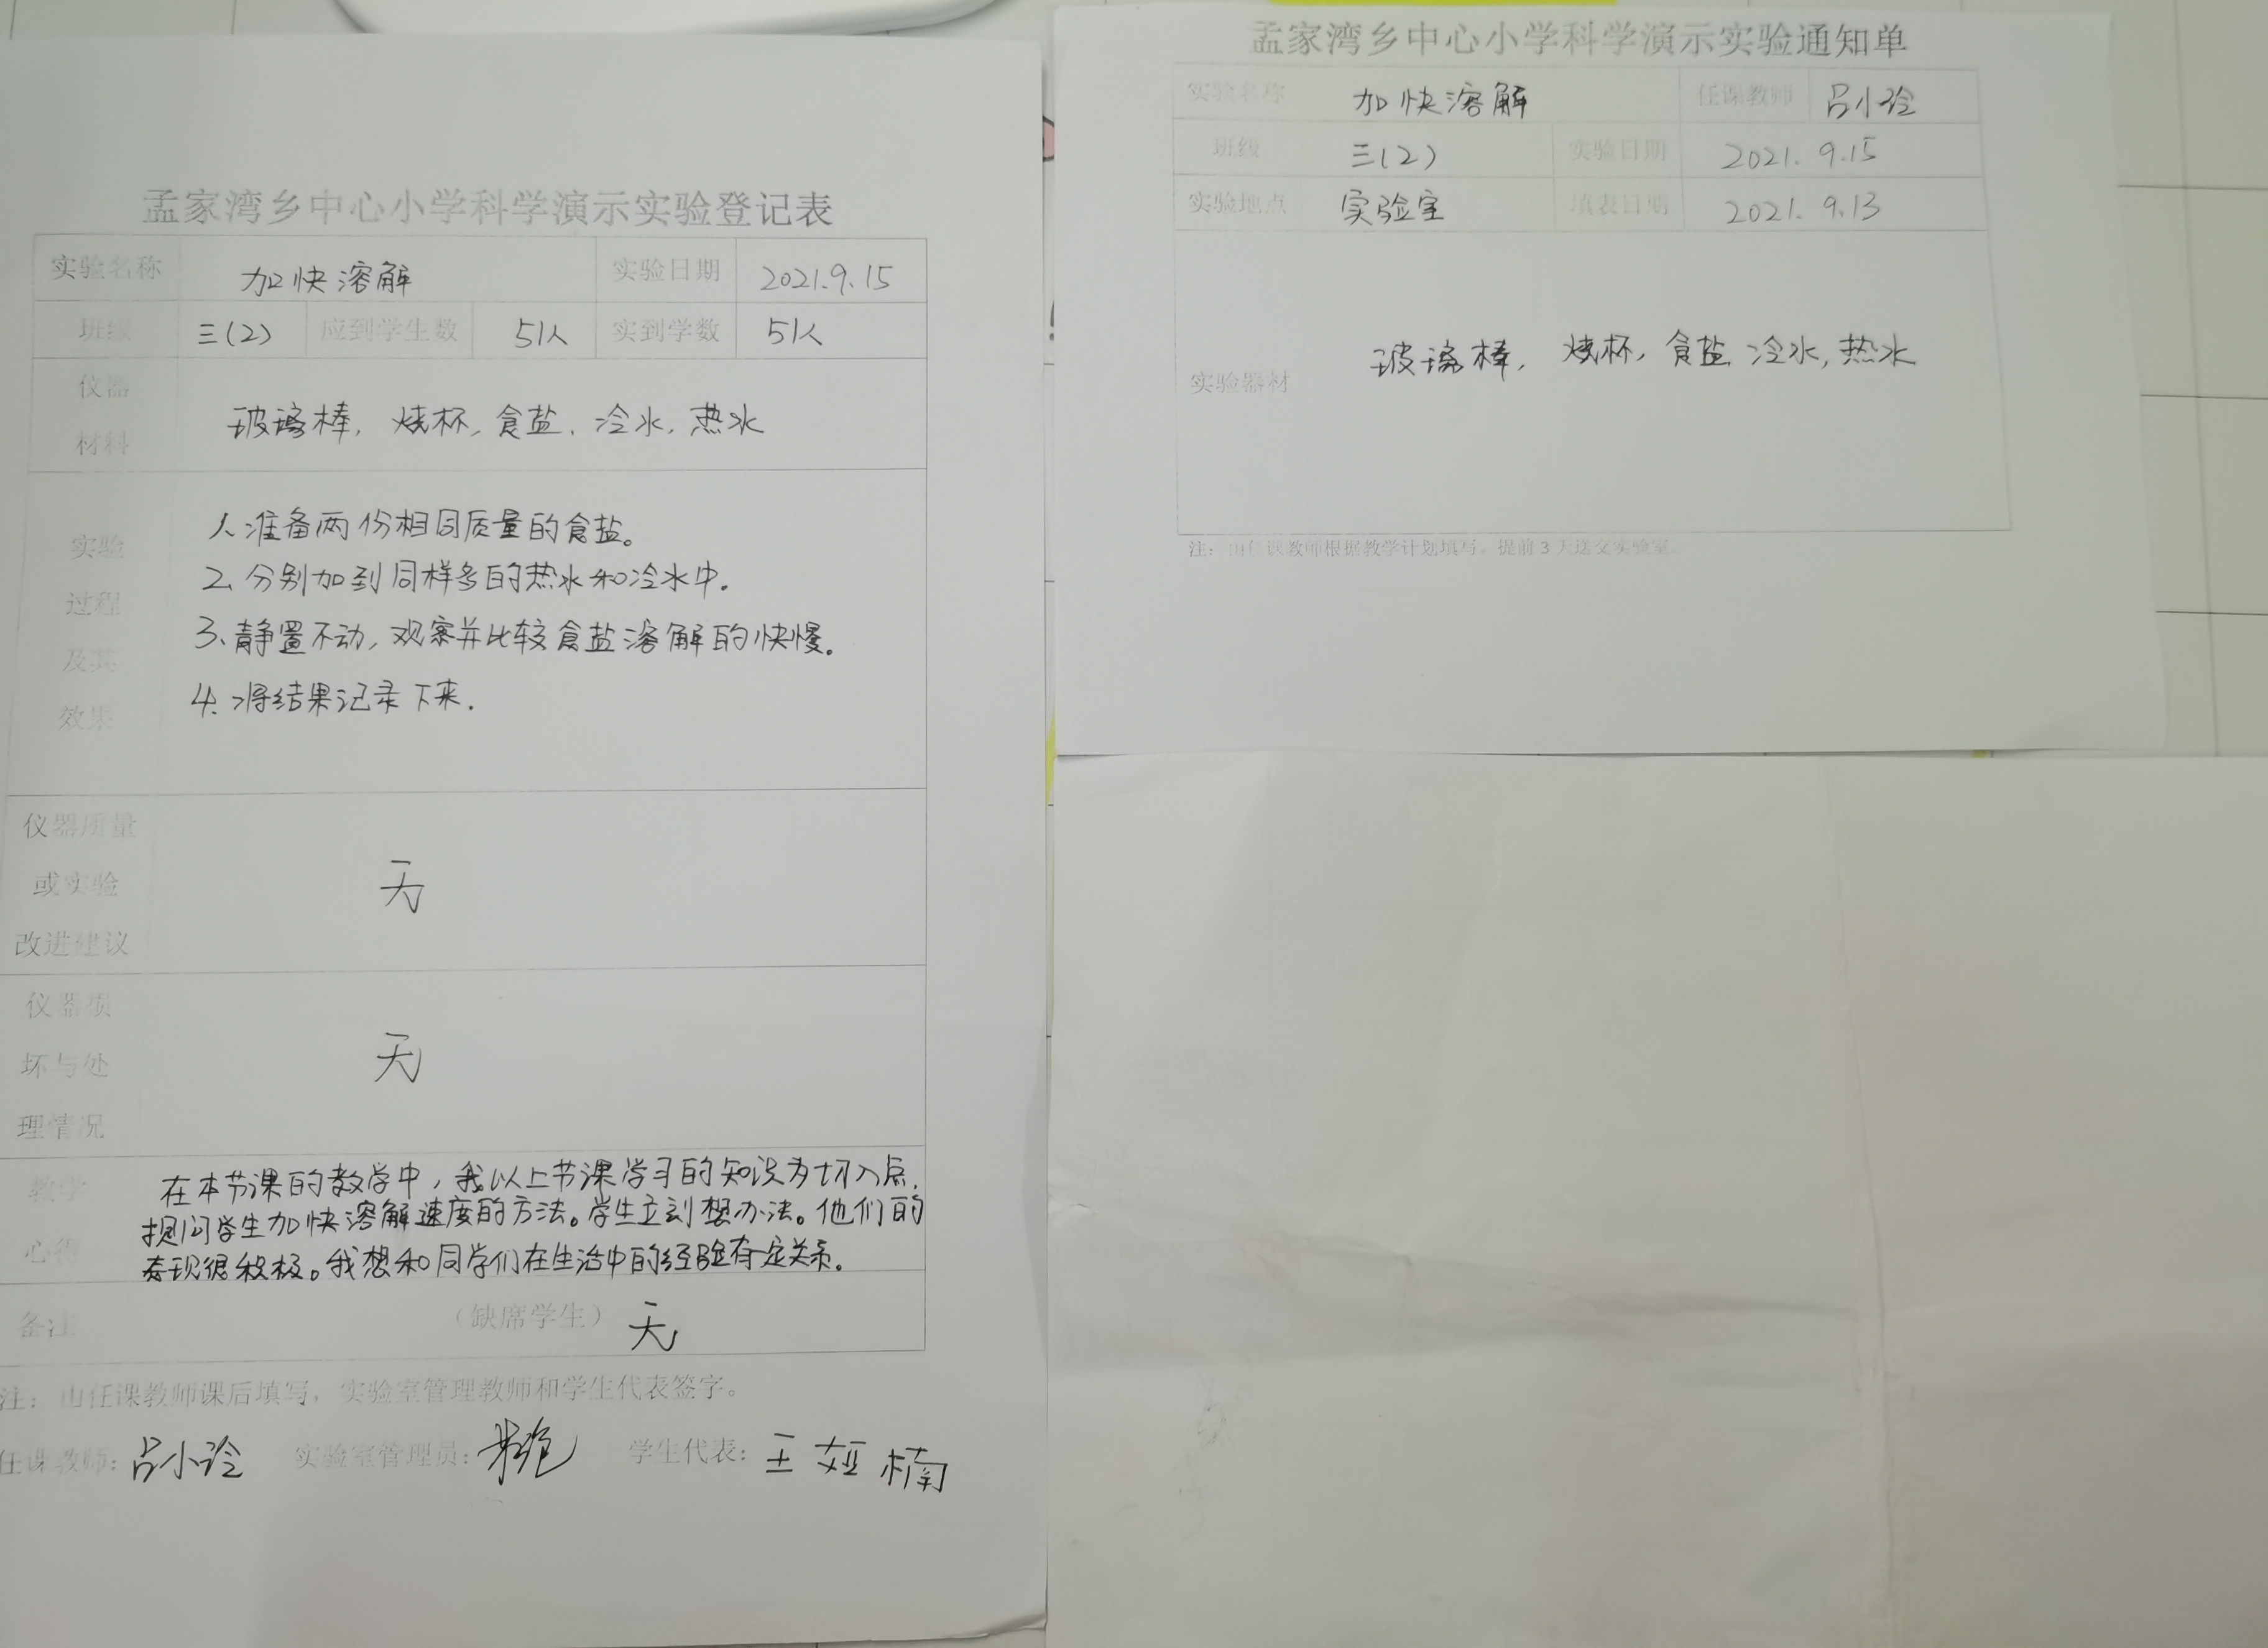 孟家湾乡中心小学科学演示实验登记表
实验名称 加快溶解 实验日期 2021.9.15
班级 三(2) 应到学生数 51人 实到学数 51人
仪器
材料
玻璃棒, 烧杯, 食盐、冷水, 热水
实验
过程
及其
效果
1、准备两份相同质量的食盐。
2、分别加到同样多的热水和冷水中.
3、静置不动, 观察并比较食盐溶解的快慢。
4、将结果记录下来.
仪器质量
或实验
改进建议
无
仪器损
坏与处
理情况
无
教学
心得
在本节课的教学中, 我以上节课学习的知识为切入点,
提问学生加快溶解速度的方法。学生立刻想办法。他们的
表现很积极。我想和同学们在生活中的经验有一定关系。
备注 (缺席学生) 无
注: 由任课教师课后填写, 实验室管理教师和学生代表签字。
任课教师: 吕小玲 实验室管理员: 学生代表: 王娅楠
孟家湾乡中心小学科学演示实验通知单
实验名称 加快溶解 任课教师 吕小玲
班级 三(2) 实验日期 2021.9.15
实验地点 实验室 填表日期 2021.9.13
实验器材 玻璃棒, 烧杯, 食盐 冷水, 热水
注: 由任课教师根据教学计划填写。提前3天送交实验室。